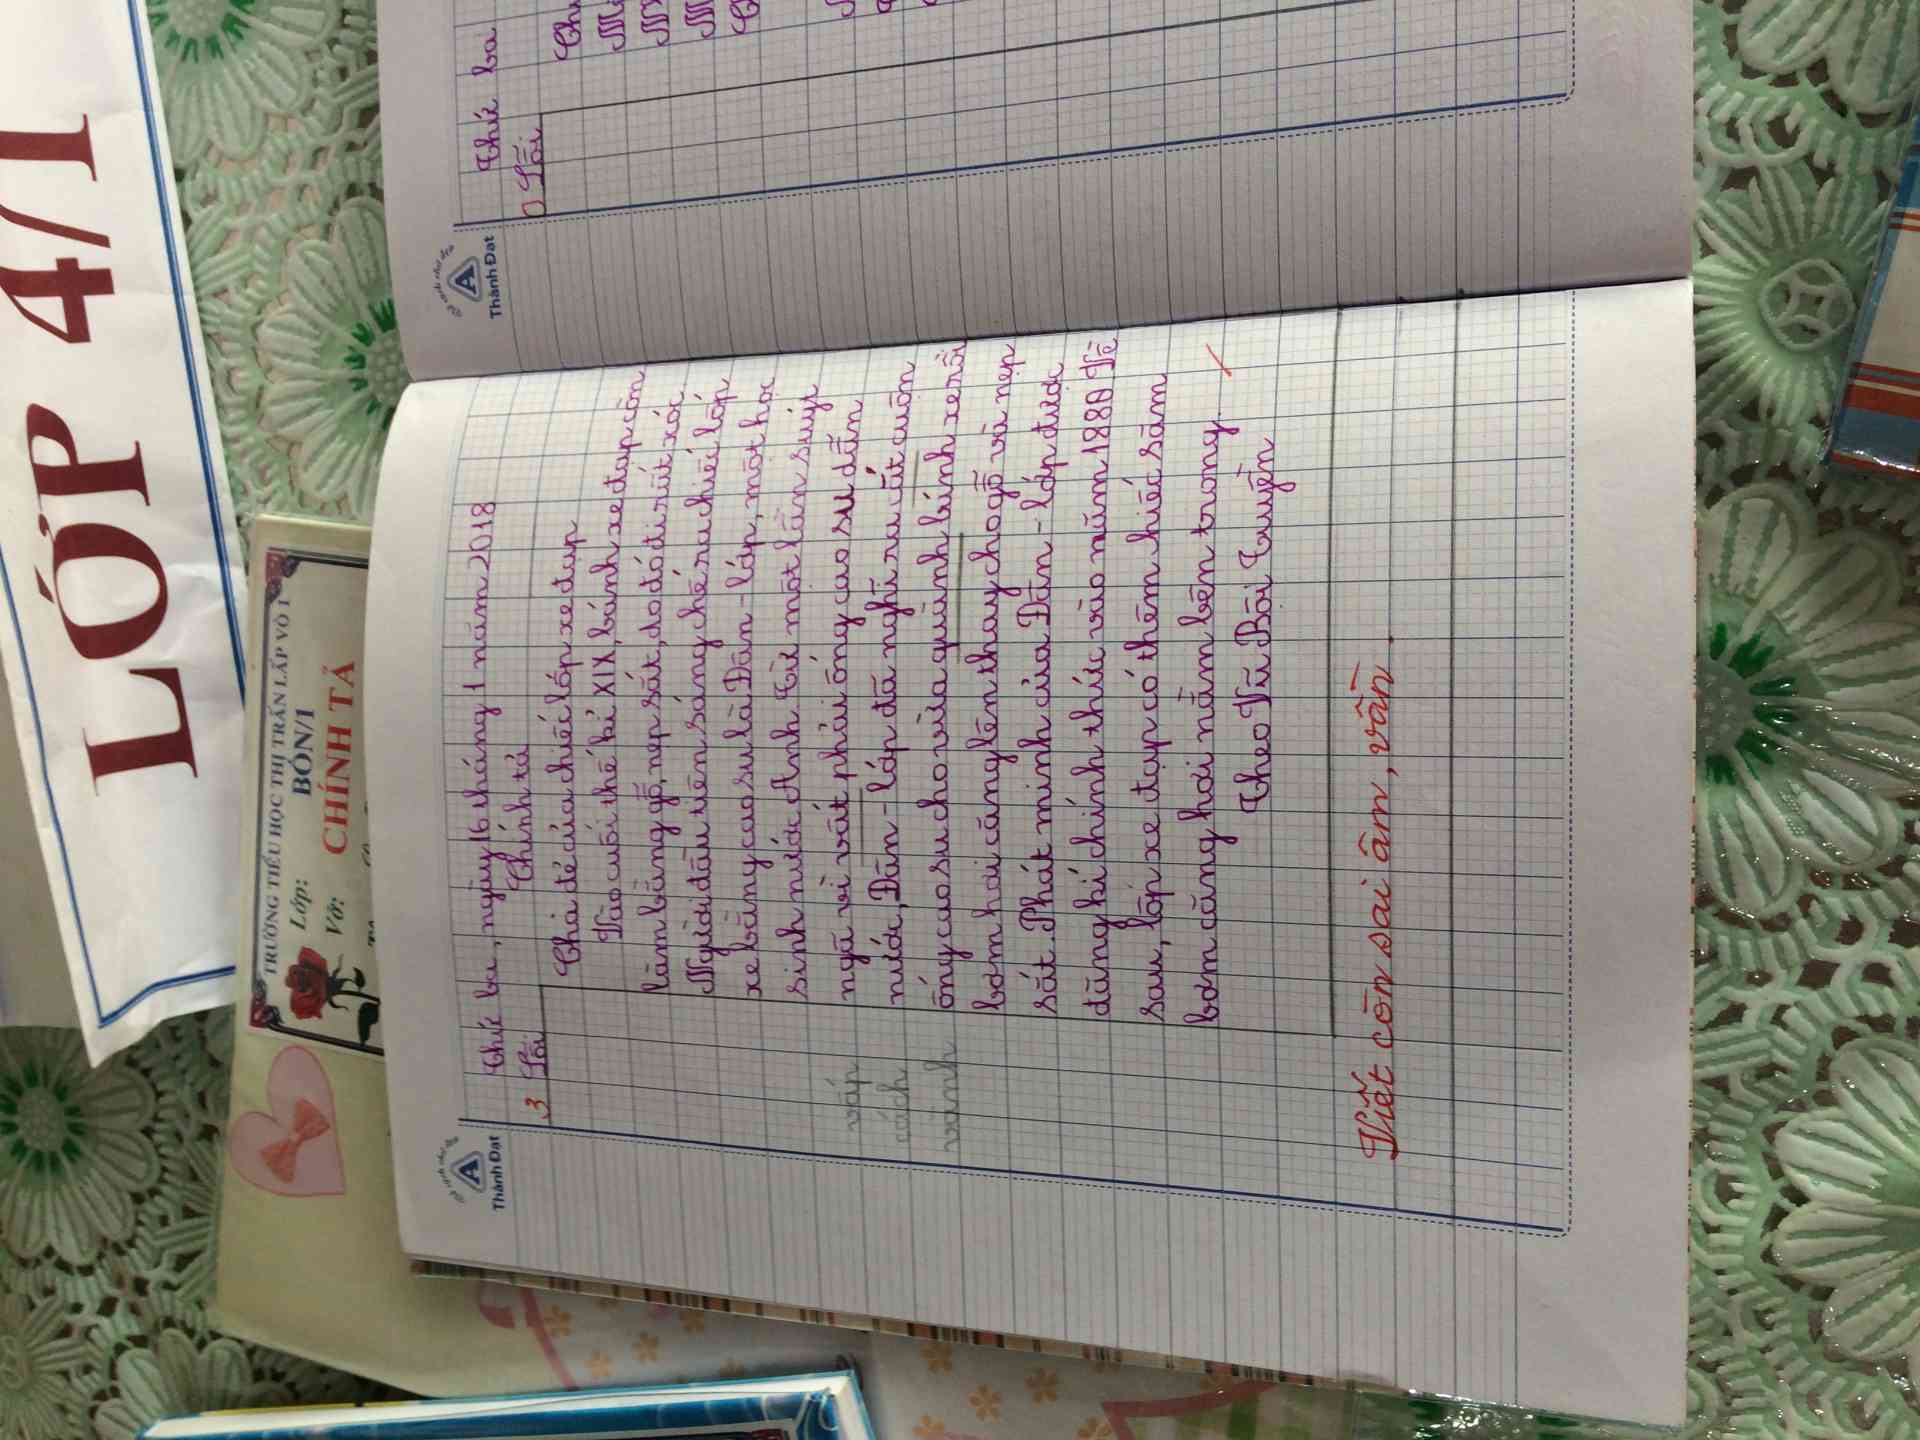 LỚP 4/1
TRƯỜNG TIỂU HỌC THỊ TRẤN LẤP VÒ 1
Lớp: BỐN/1
Vở: CHÍNH TẢ
Thành Đạt
Thứ ba, ngày 16 tháng 1 năm 2018
3 Lỗi Chính tả
Cha đẻ của chiếc lốp xe đạp
Vào cuối thế kỉ XIX, bánh xe đạp còn
làm bằng gỗ, nẹp sắt, do đó đi rất xóc
Người đầu tiên sáng chế ra chiếc lốp
xe bằng cao su là Đân-lớp, một học
sinh nước Anh. Từ một lần suýt
ngã vì vất phải ống cao su dẫn
vấp
nước, Đân-lớp đã nghĩ ra cắt cuộn
cách
ống cao su cho vừa quành bánh xe rồi
vành
bơm hơi căng lên thay cho gỗ và nẹp
sắt. Phát minh của Đân-lớp được
đăng kí chính thức vào năm 1880 Về
sau, lốp xe đạp có thêm chiếc săm
bơm căng hơi nằm bên trong.
Theo Vũ Bội Tuyền
Viết còn sai âm, vần.
Thành Đạt
Thứ ba
0 Lỗi